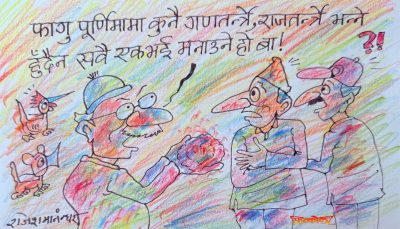 फागु पूर्णिमामा कुनै गणतन्त्रै, राजतन्त्रै भन्ने
हुँदैन सबै एकभई मनाउने हो बा!
?!